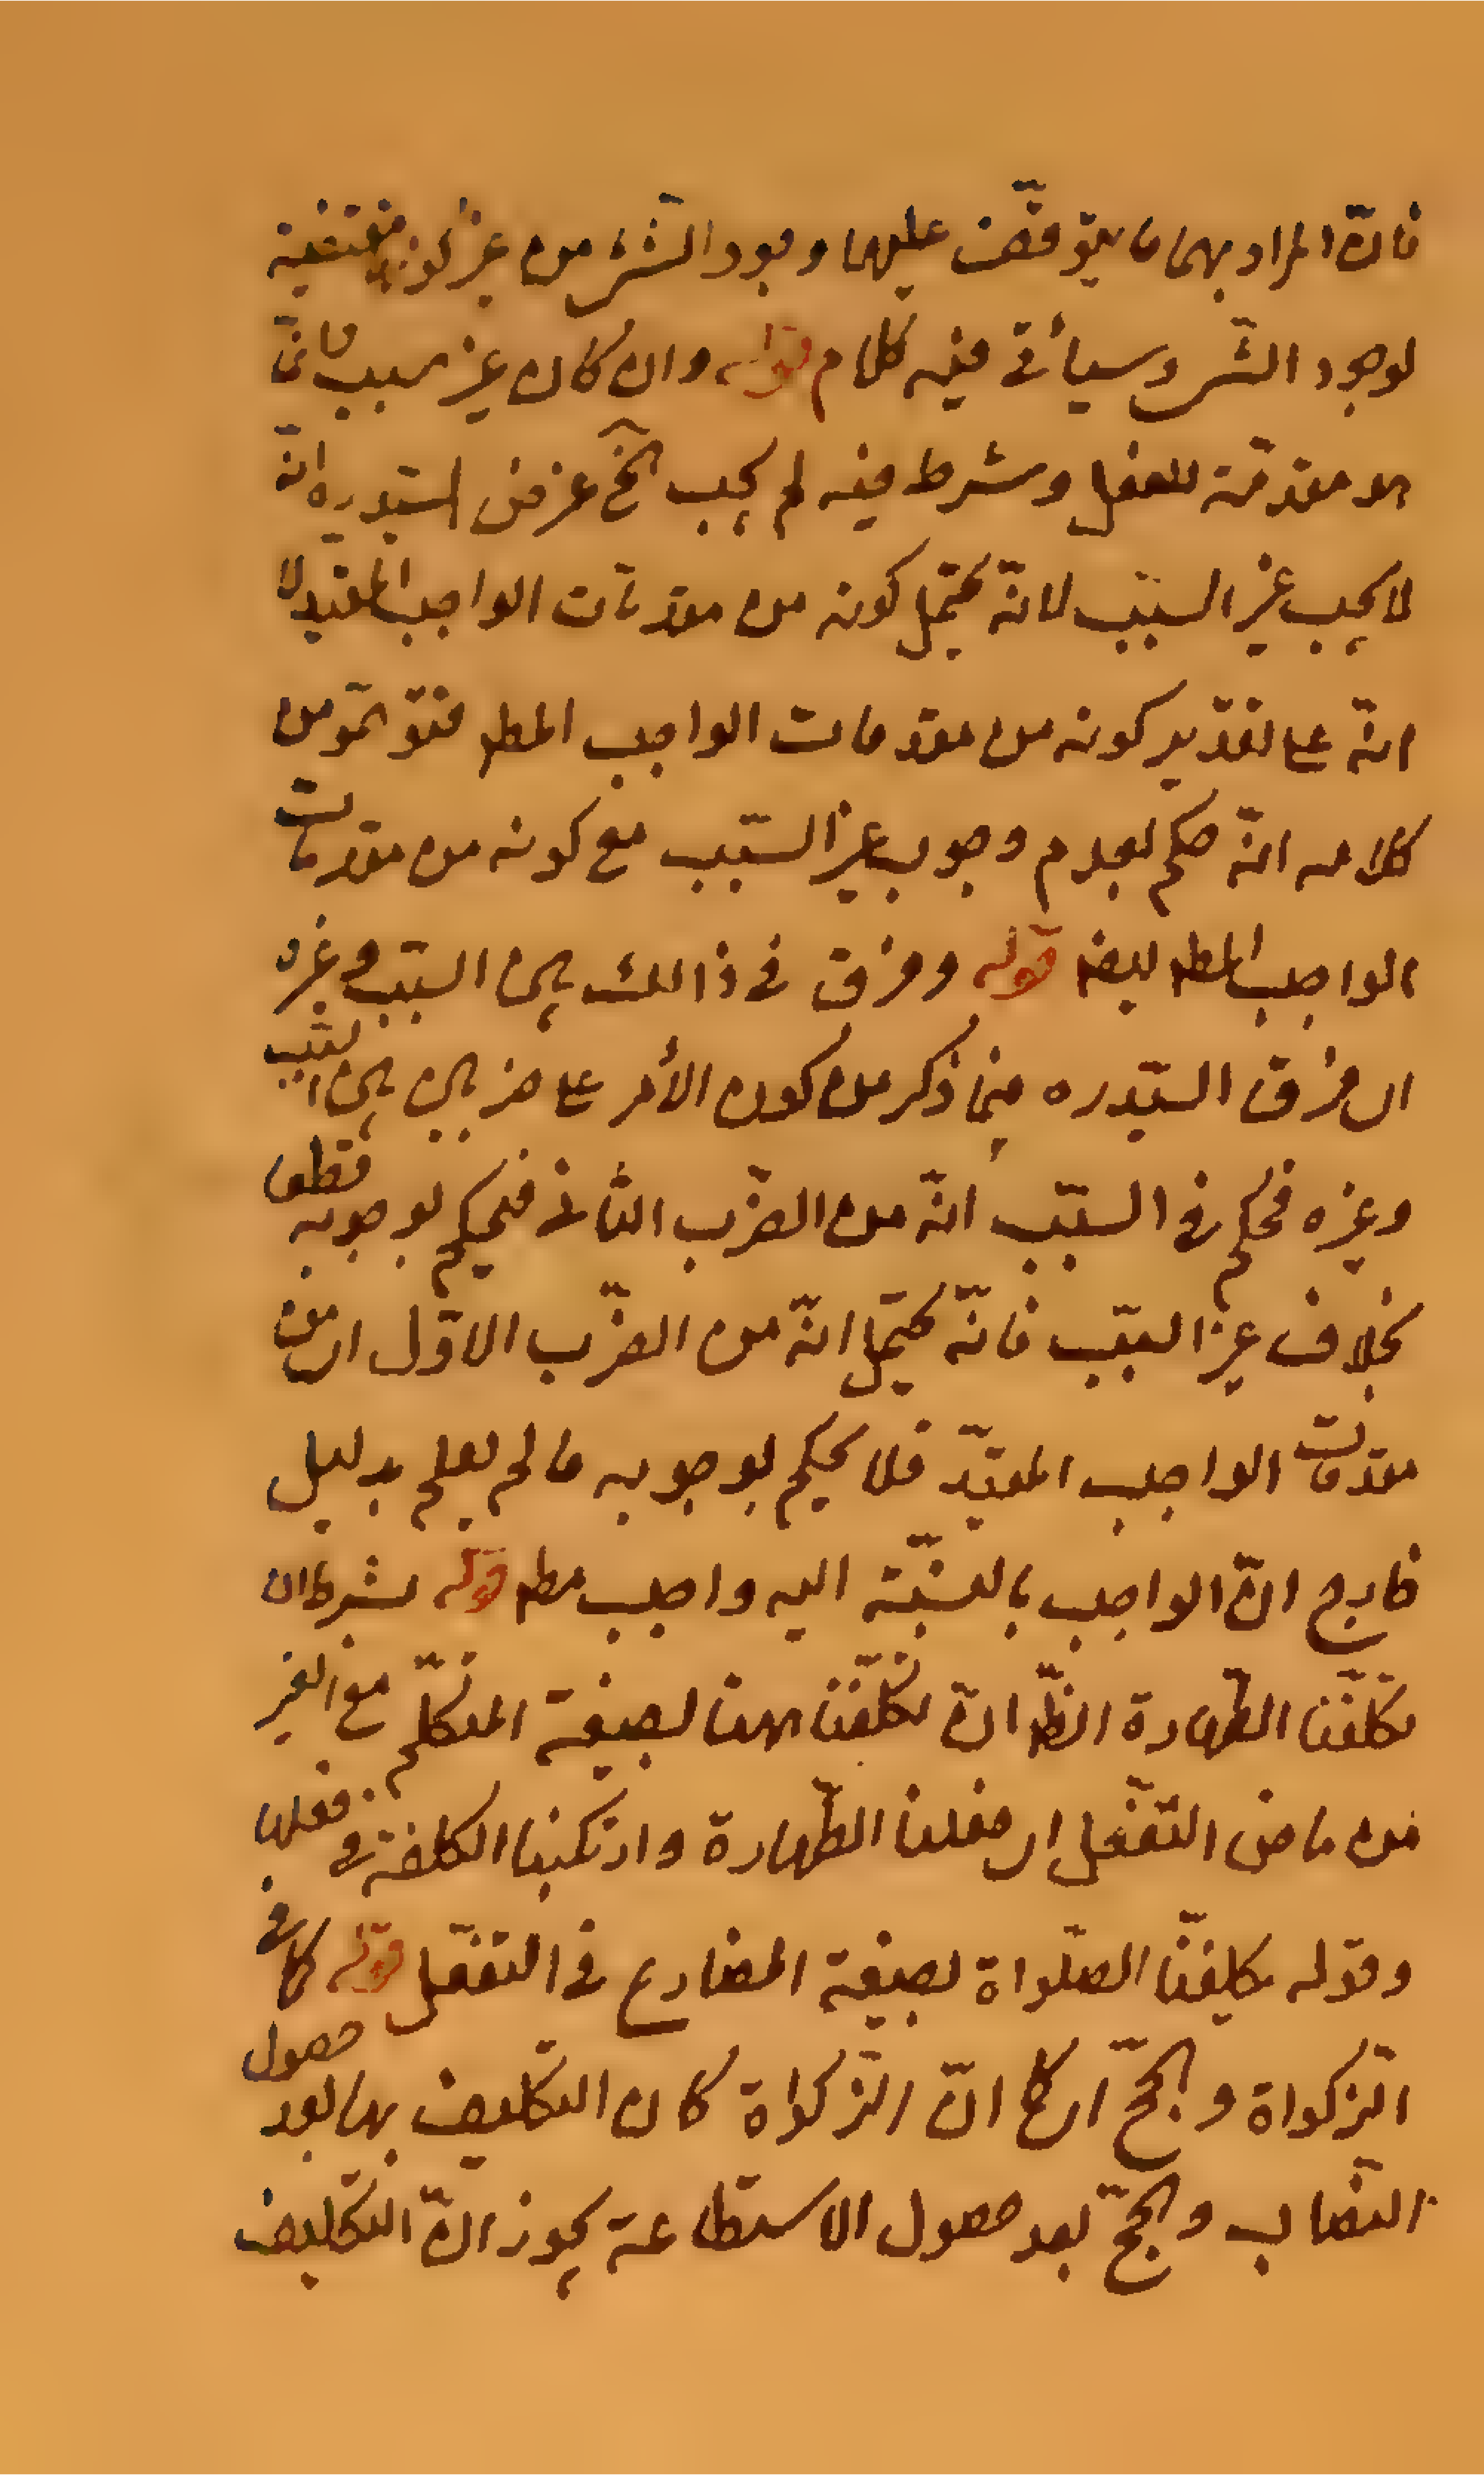 فانّ المراد بهما ما يتوقّف عليهما وجود الشّئ من غير كونه مقتضية
لوجود الشّئ وسيأتى فيه كلام قوله وان كان غير سبب وانّما
هو مقدّمة للفعل وشرط فيه لم يجب الخ غرض السّيد ره انّه
لا يجب غير السّبب لانّه يحتمل كونه من مقدّمات الواجب المقيّد لا
انّه على تقدير كونه من مقدّمات الواجب المطلق فتوهّم من
كلامه انّه حكم بعدم وجوب غير السّبب مع كونه من مقدّمات
الواجب المط ايضا قوله وفرق فى ذالك بين السّبب وغيره
اى فرق السّيد ره فيما ذكر من كون الأمر على ضربين بين السّبب
وغيره فحكم فى السّبب انّه من الضّرب الثّانى فيحكم بوجوبه قطعا
بخلاف غير السّبب فانّه يحتمل انّه من الضّرب الاوّل اى من
مقدّمات الواجب المقيّد فلا يحكم بوجوبه ما لم يعلم بدليل
خارج انّ الواجب بالنّسبة اليه واجب مط قوله بشرط ان
تكلّفنا الطّهارة الظّ انّ تكلّفنا ههنا بصيغة المتكلّم مع الغير
من ماضى التّفعّل اى فعلنا الطّهارة وارتكبنا الكلفة فى فعلها
وقوله تكليفنا الصّلواة بصيغة المضارع فى التّفعّل قوله كما فى
الزّكواة والحجّ اى كما انّ الزّكواة كان التّكليف بها بعد حصول
النّصاب والحجّ بعد حصول الاستطاعة يجوز انّ التّكليف